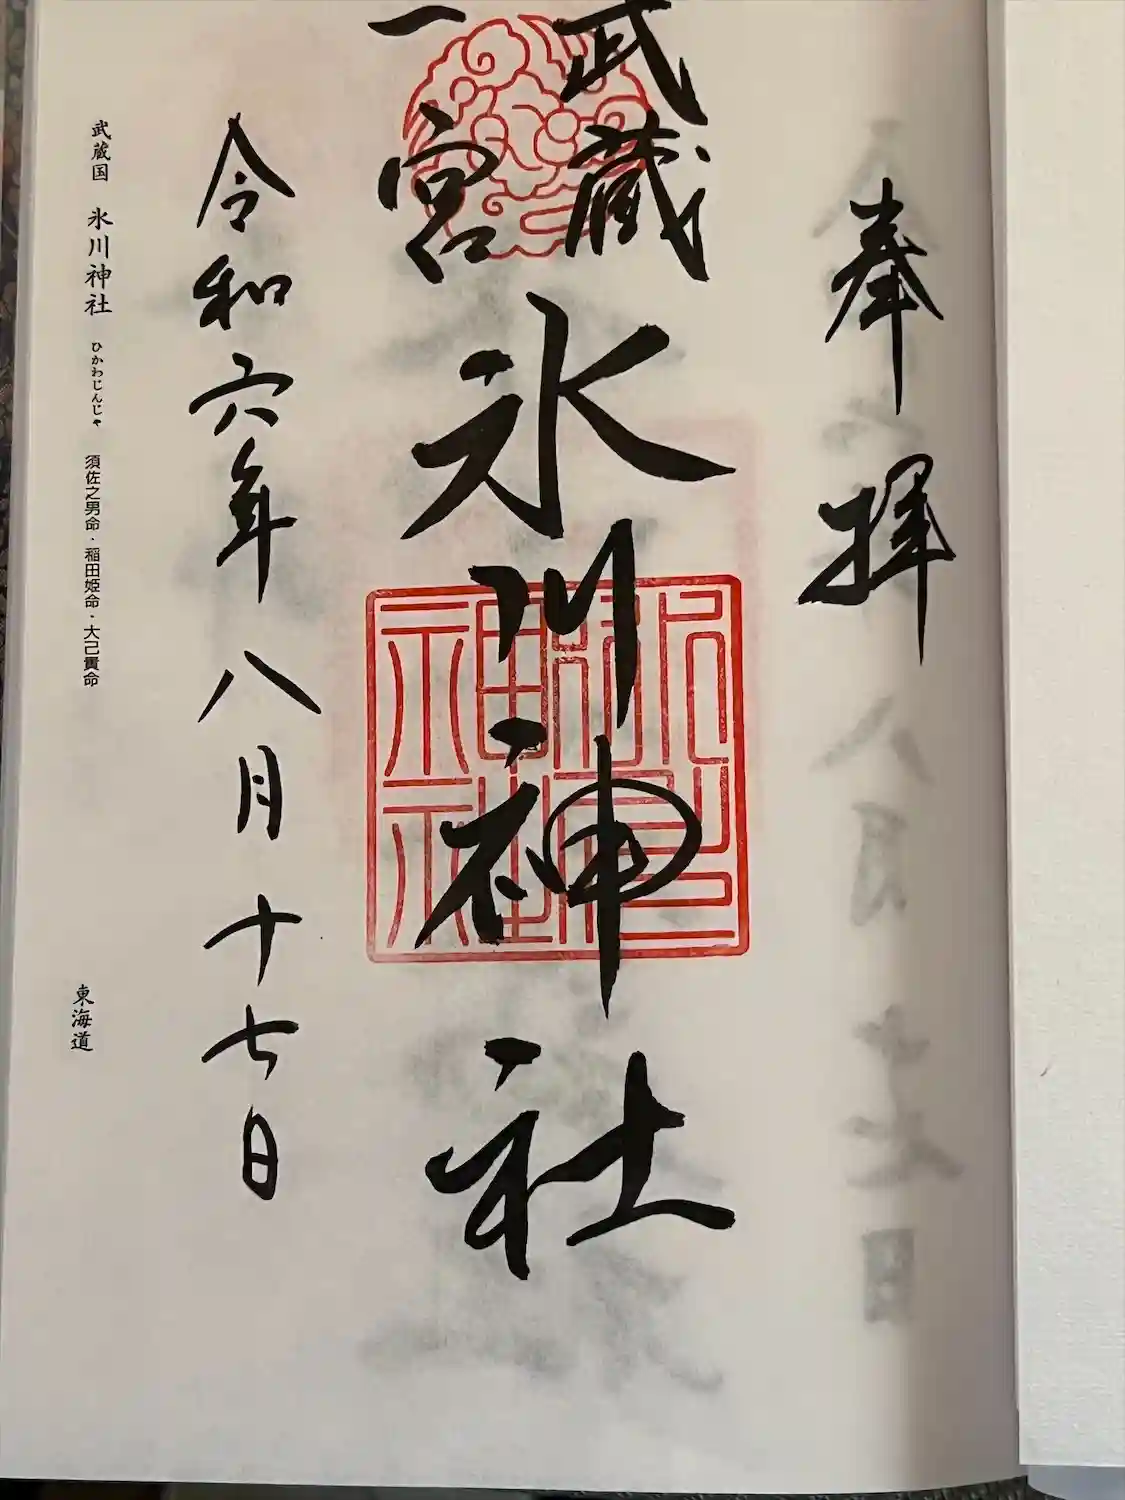 奉拝
武蔵
一宮
氷川神社
氷川神社
令和六年八月十七日
武蔵国 氷川神社 ひかわじんじゃ 須佐之男命・稲田姫命・大己貴命
東海道